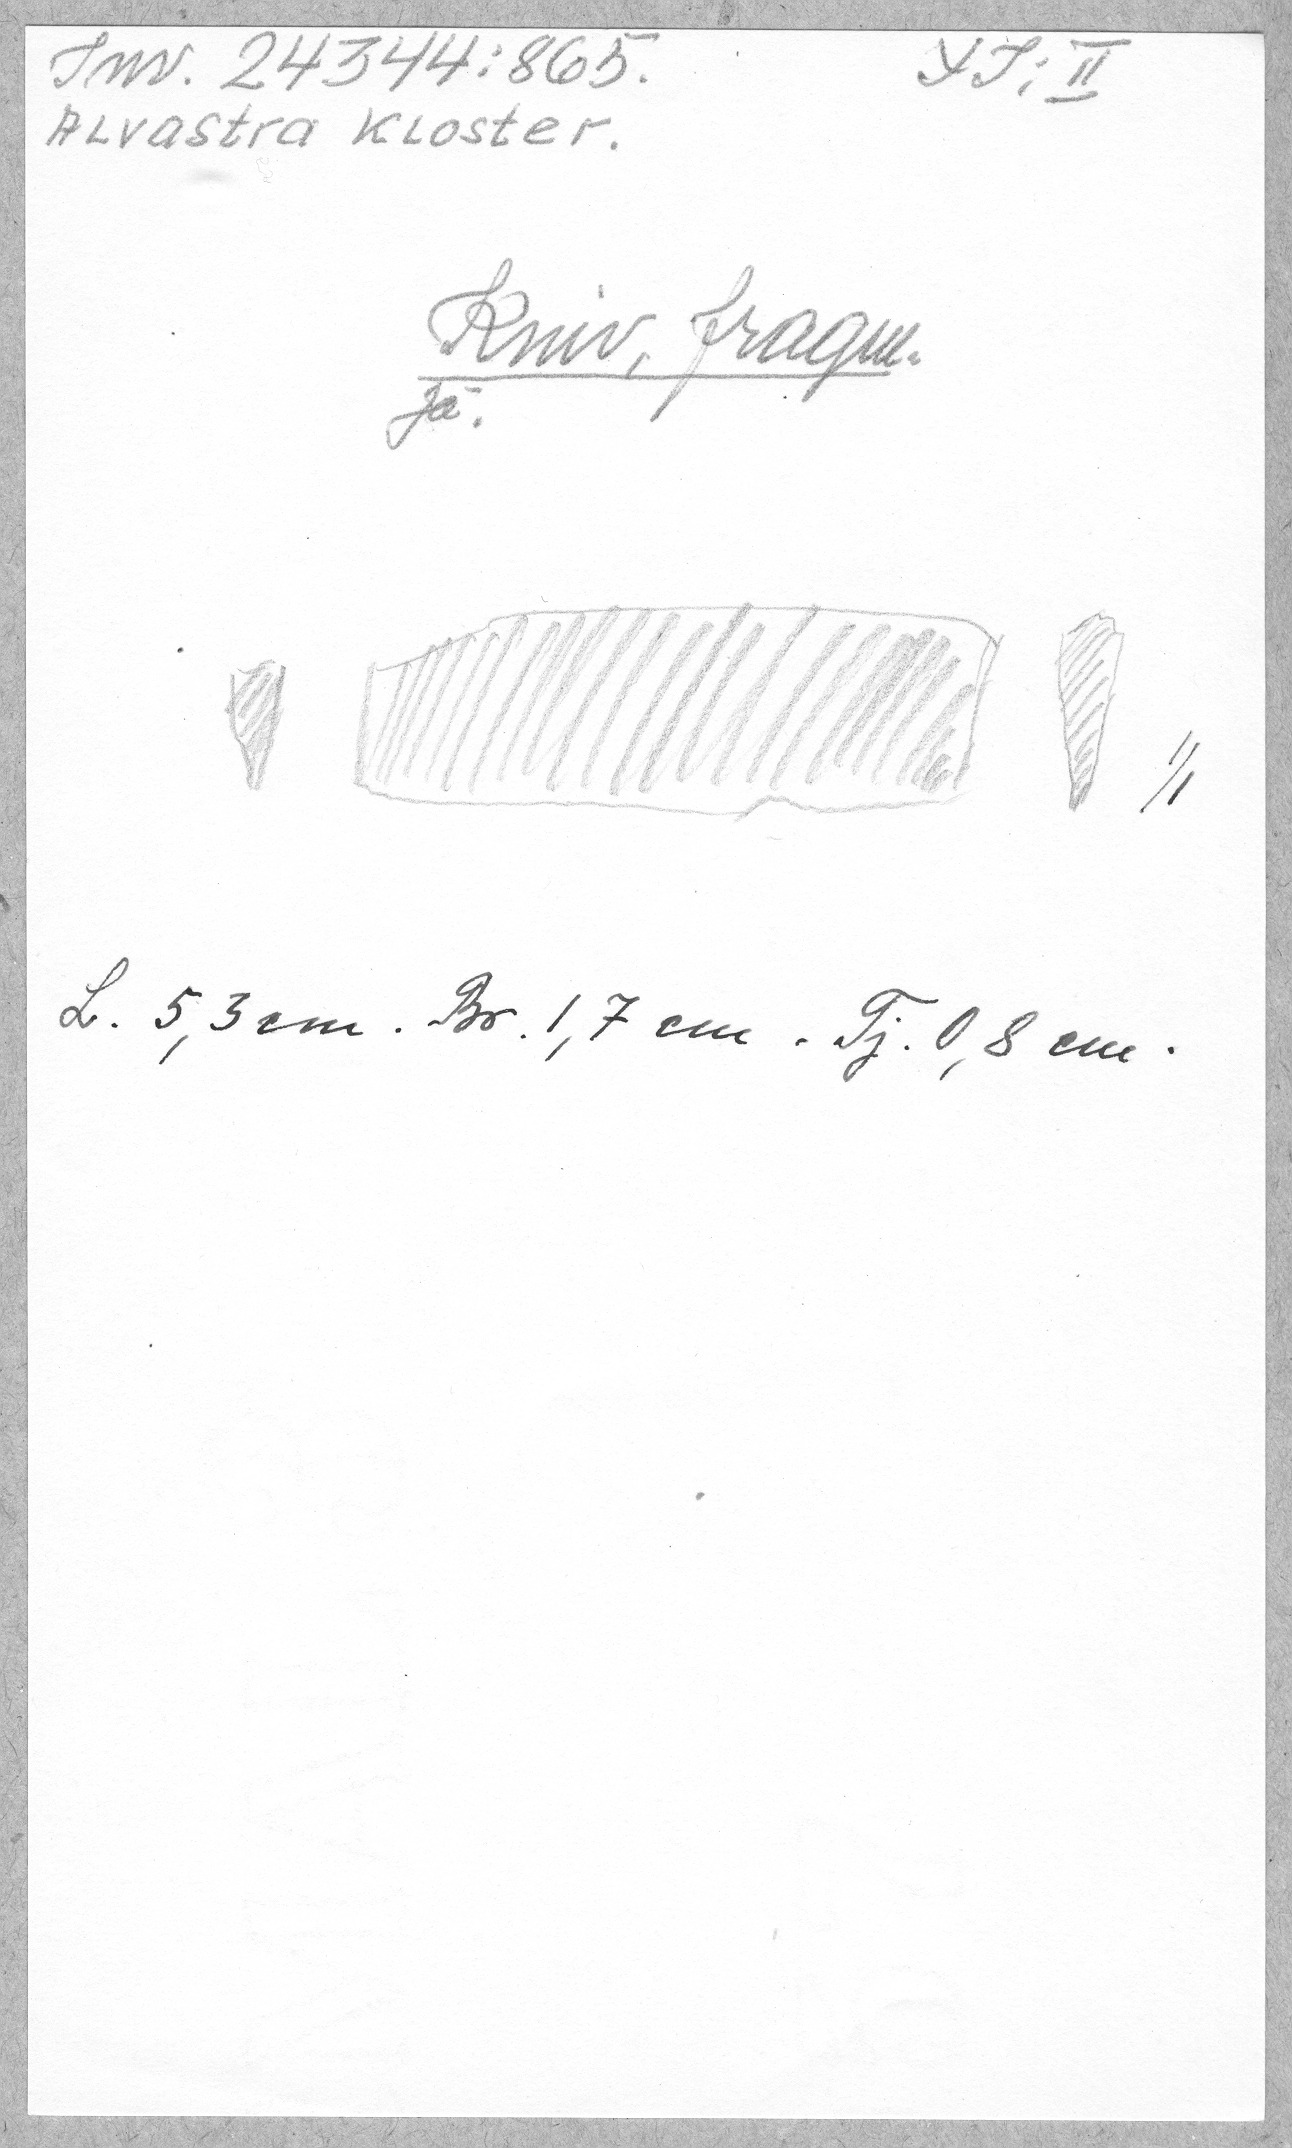 Inv. 24344:865. YJ: II
ALvastra KLoster.
Kniv, fragm.
Jä.
1/1
L. 5,3 cm. Br. 1,7 cm. Tj. 0,8 cm.